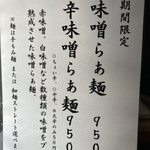 期間限定
味噌らぁ麺 950
辛味噌らぁ麺 950
赤味噌、白味噌など数種類の味噌をブ
熟成させた味噌らぁ麺、
※麺は手もみ麺 または 細麺ストレート 選べま